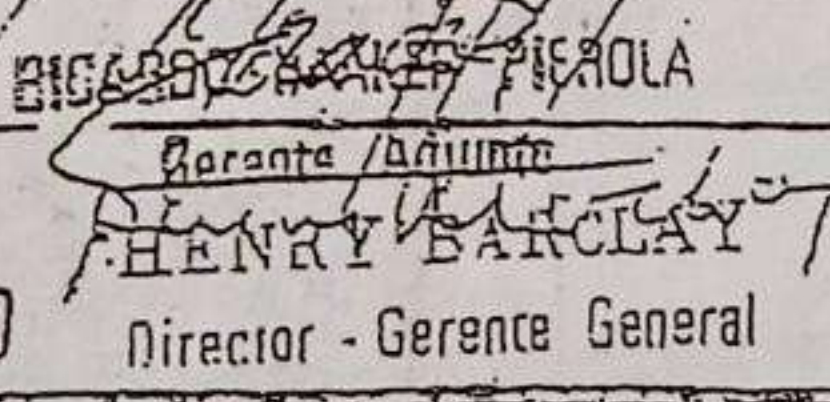 RICARDO PIEROLA
Gerente Adjunto
HENRY BARCLAY
Director - Gerente General